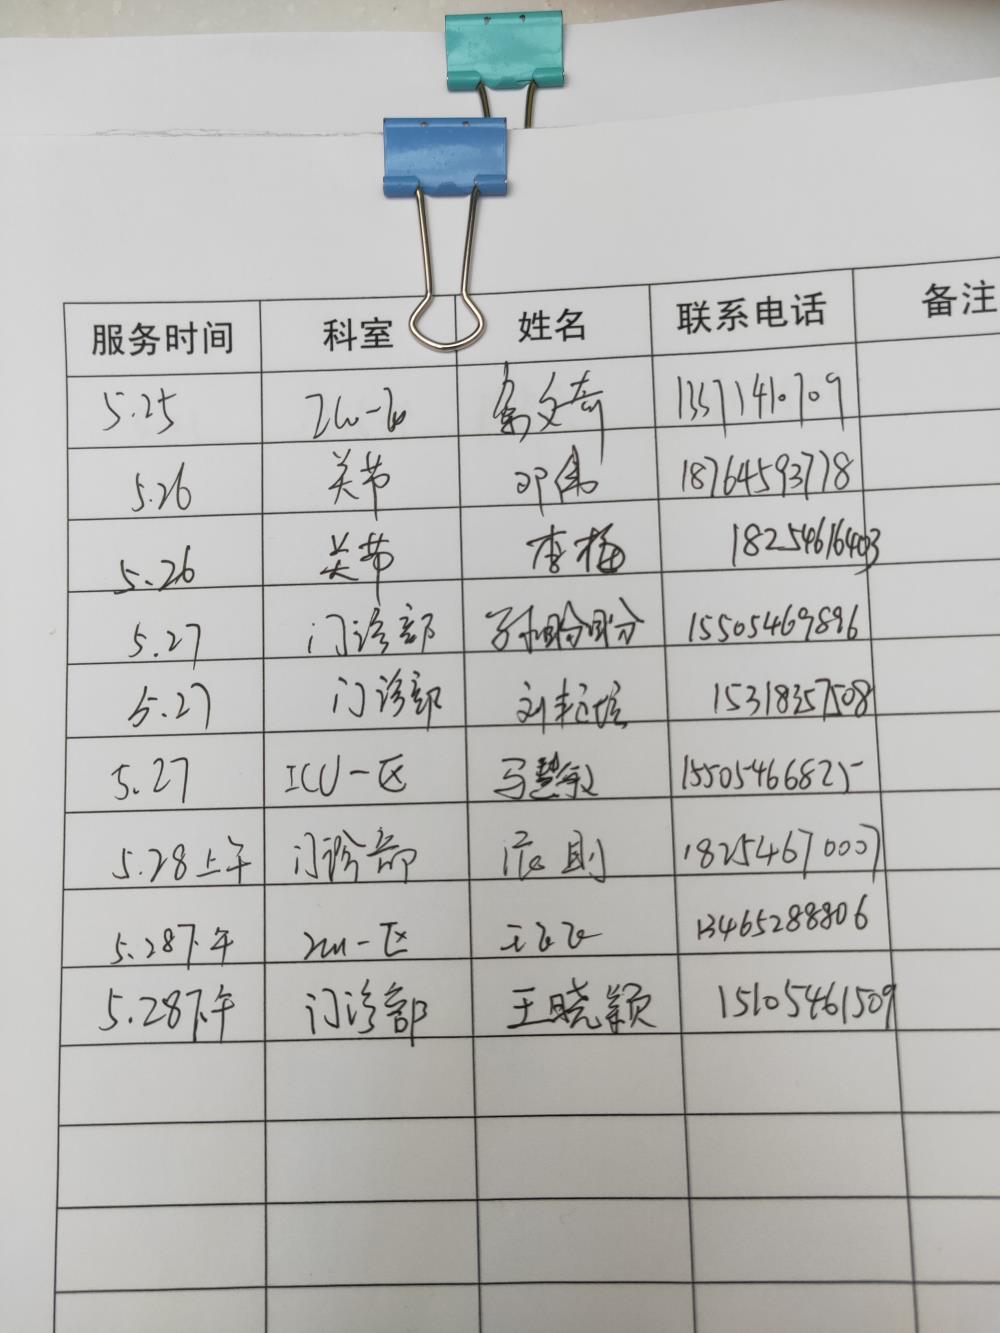 服务时间 科室 姓名 联系电话 备注
5.25
5.26 关节 邓伟 18764593778
5.26 关节 李梅 18254616403
5.27 门诊部 孙盼盼 15505469896
5.27 门诊部 15318357508
5.27 ICU一区 马慧敏 15505466825
5.28上午 门诊部 18254670007
5.28下午 ICU一区 王飞飞 13465288806
5.28下午 门诊部 王晓颖 15105461509